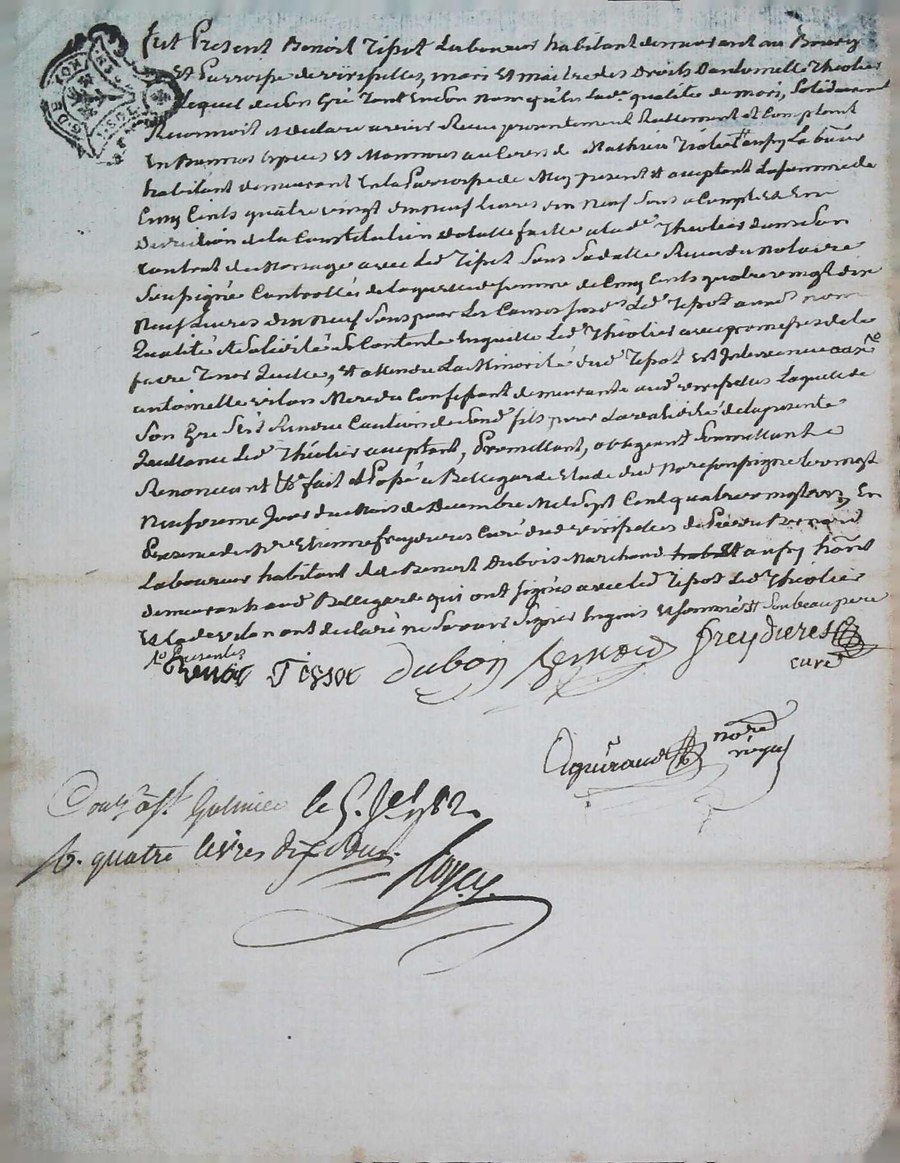 fut Present Benoit Tissot Laboureur habitant demeurant au Bourg
et Parroisse de virisselles, mari et maitre des Droits Dantoinette Theolier
Lequel de son Gré tant en son nom qu'en lad. qualité de mari, solidairemt
Reconnoit et declare avoir Recu presentement Reellement et Comptant
En Bonnes espèces et Monnoies au Cours de Mathieu Théolier aussy Laboureur
habitant demeurant En la Parroisse de present et acceptant La somme de
Cinq Cents quatre vingt dix neuf Livres dix neuf Sous a Compte et En
de la Constitution dotale faitte a lad. Theolier dans son
Contrat de Mariage avec Led Tissot sous sa datte Recu du Notaire
Soussigné Controllé, de laquelle somme de Cinq Cents quatre vingt dix
Neuf Livres dix Neuf Sous pour Les Causes susd. Led Tissot aud. nom
Qualité et Solidité se Contente En quitte Led. Théolier avec promesses de le
faire Tenir Quitte, et attendu La Minorité dud Tissot Est Intervenue
antoinette vilon Mere du Confessant demeurante aud virisselles Laquelle de
Son Gré s'est Rendue Caution de Sond. fils pour La validité de la presente
Quittance Led. Théolier acceptant, Promettant, obligeant Soumettant
Renoncant &c fait et Passé a Bellegarde Etude du Nore soussigné le vingt
Neufvieme Jour du Mois de Decembre Mil Sept Cent quatre vingt En
Presence de Mre Etienne freydieres Curé dud virisselles de Pierre Bernard
Laboureur habitant de Benoit Dubois Marchand aussy habt
demeurant aud Bellegarde qui ont signés avec Led Tissot Led Théolier
Et Lad vilon ont declaré ne Savoir Signer Enquis et sommés et son beau pere
Benoit Tissot Dubois Bernard Freydieres
curé
Giraud nore
royal
Contrôlé à St Galmier le 5 Jer 1782
R. quatre livres dix sous